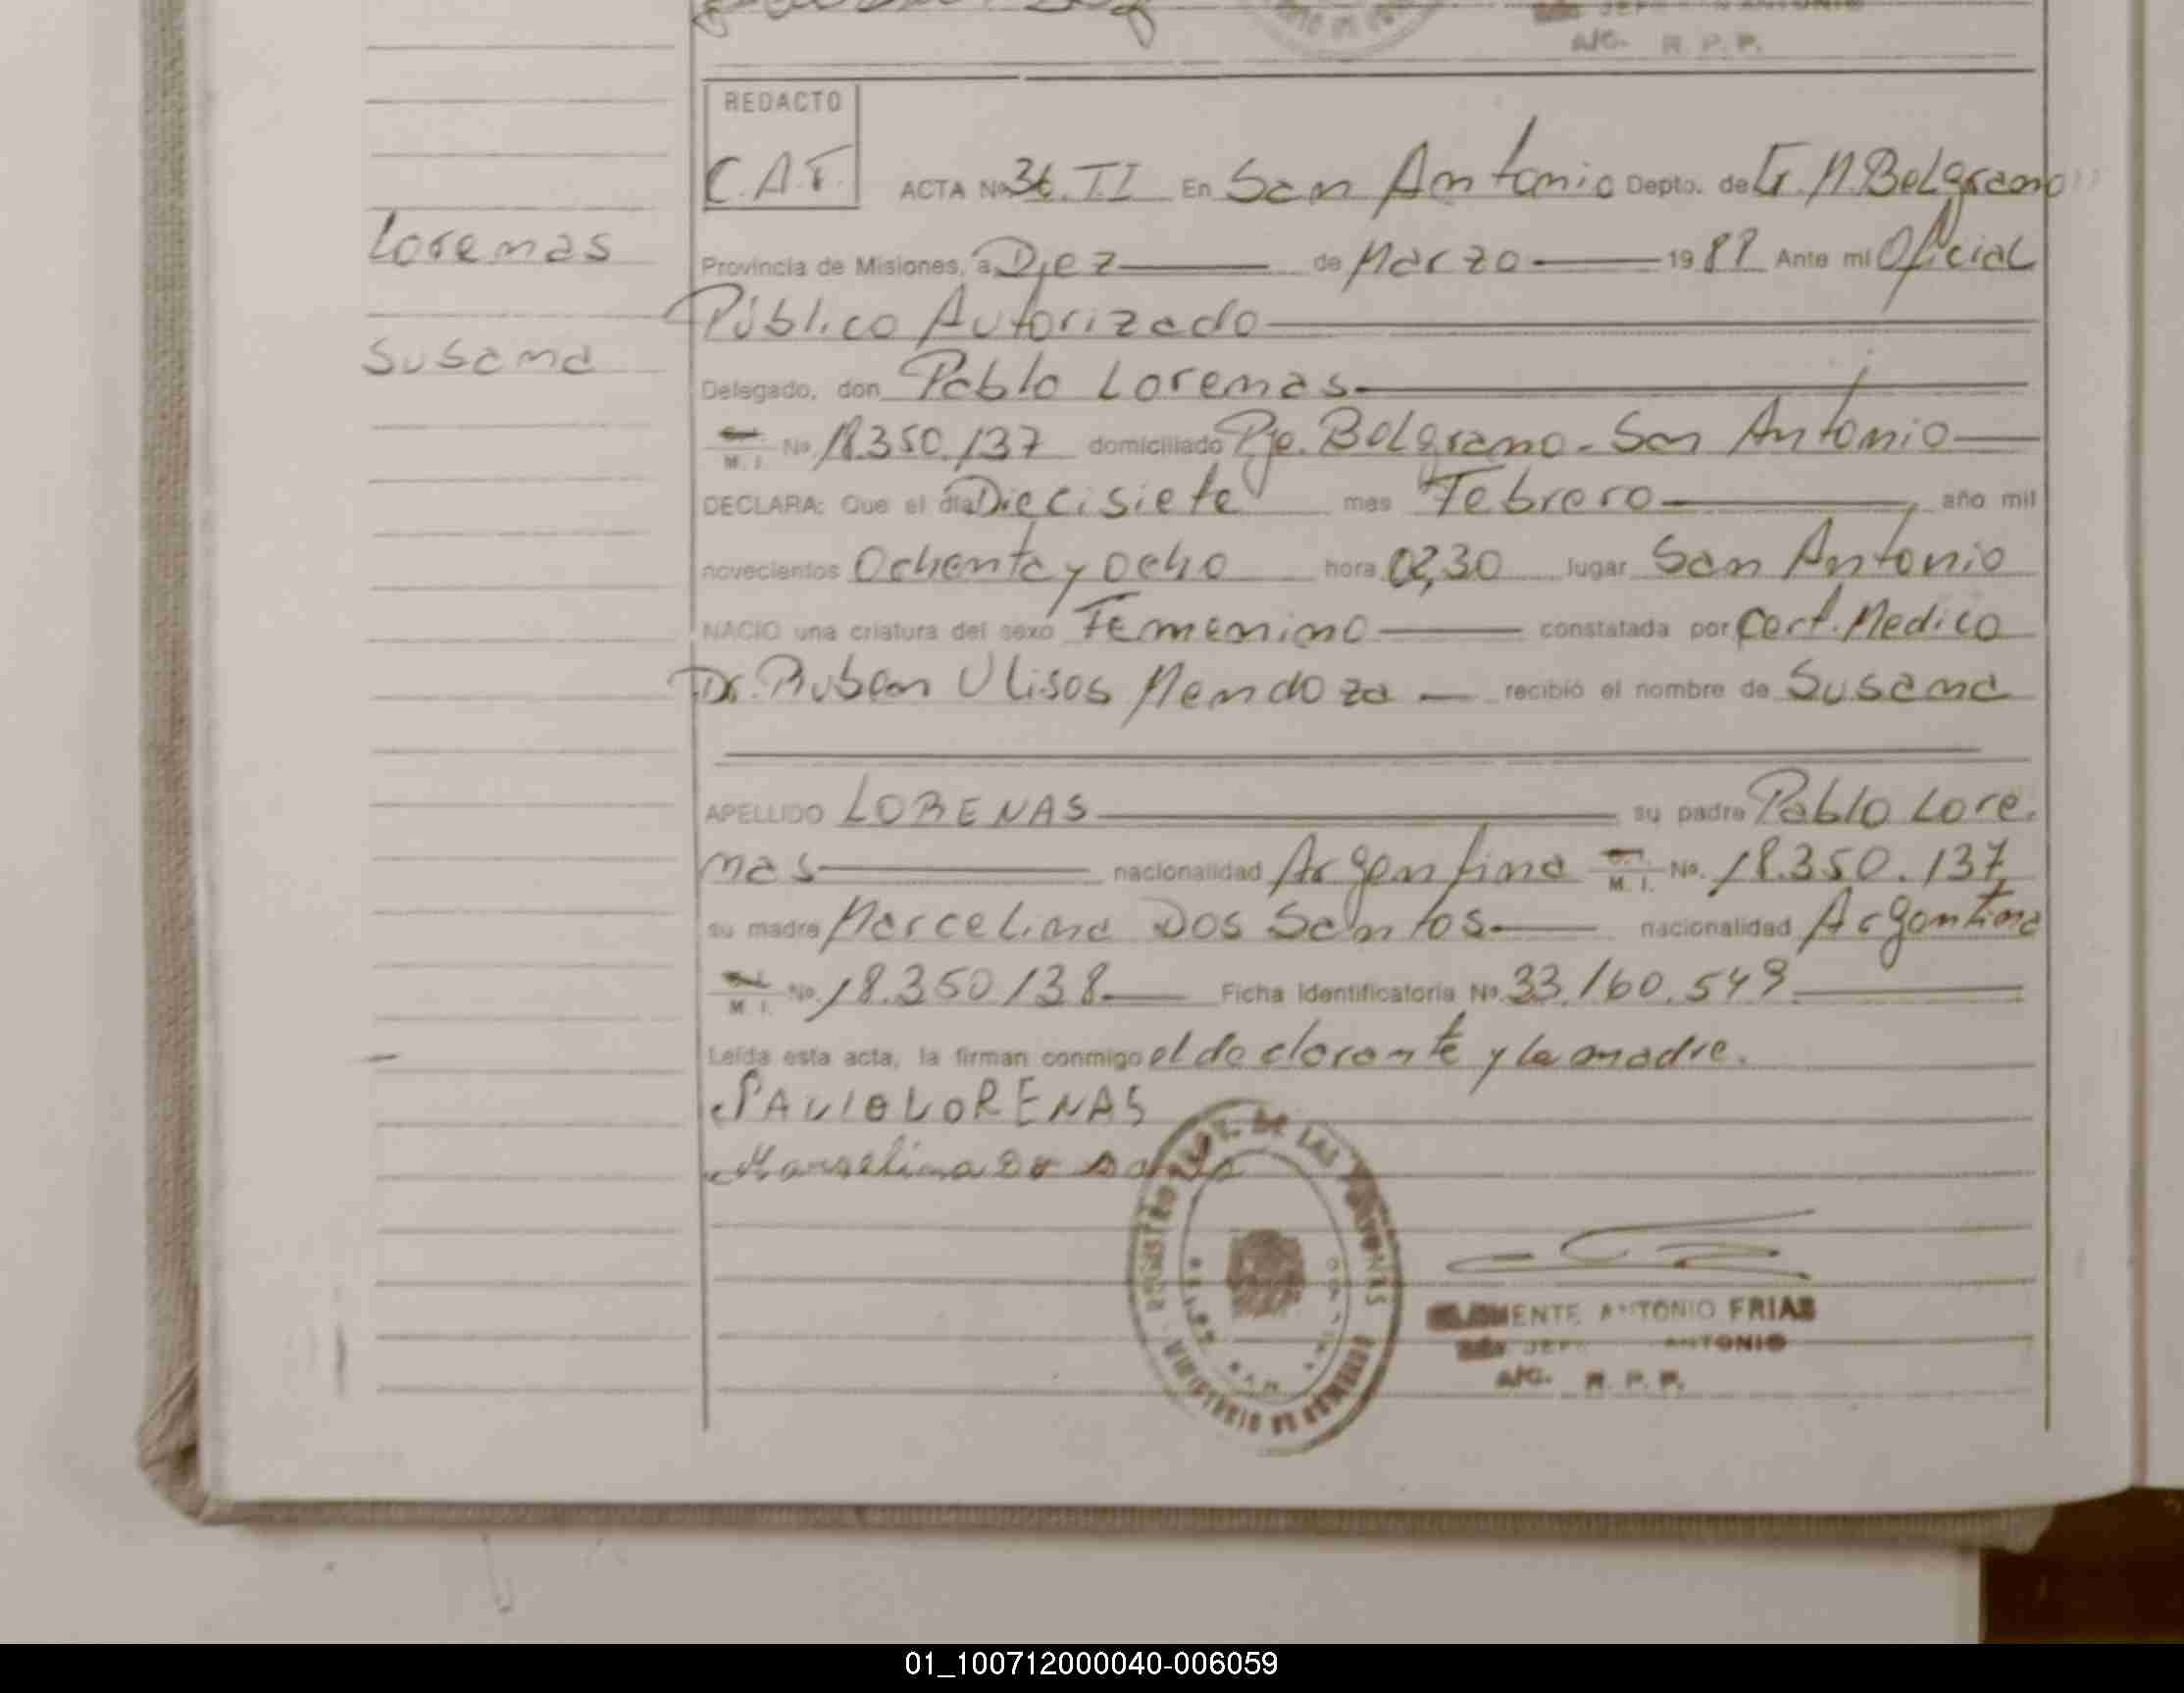 A/C. R. P. P.
REDACTO
C.A.F.
ACTA No 36. II En San Antonio Depto. de G. M. Belgrano
Lorenas
Provincia de Misiones, a Diez de Marzo 1988 Ante mi Oficial
Público Autorizado
Susana
Delegado, don Pablo Lorenas
M. I. No. 18.350.137 domiciliado Pje. Belgrano - San Antonio
DECLARA: Que el día Diecisiete mes Febrero año mil
novecientos Ochenta y Ocho hora 02,30 lugar San Antonio
NACIO una criatura del sexo Femenino constatada por Cert. Medico
Dr. Ruben Ulises Mendoza recibió el nombre de Susana
APELLIDO LORENAS su padre Pablo Lore-
nas nacionalidad Argentina M. I. No. 18.350.137
su madre Marcelina Dos Santos nacionalidad Argentina
M. I. No. 18.350138 Ficha Identificatoria No. 33.160.549
Leída esta acta, la firman conmigo el declarante y la madre.
PAVLO LORENAS
Marselina
REGISTRO DE LAS PERSONAS
MINISTERIO DE GOBIERNO
CLEMENTE ANTONIO FRIAS
JEFE ANTONIO
A/C. R. P. P.
01_100712000040-006059